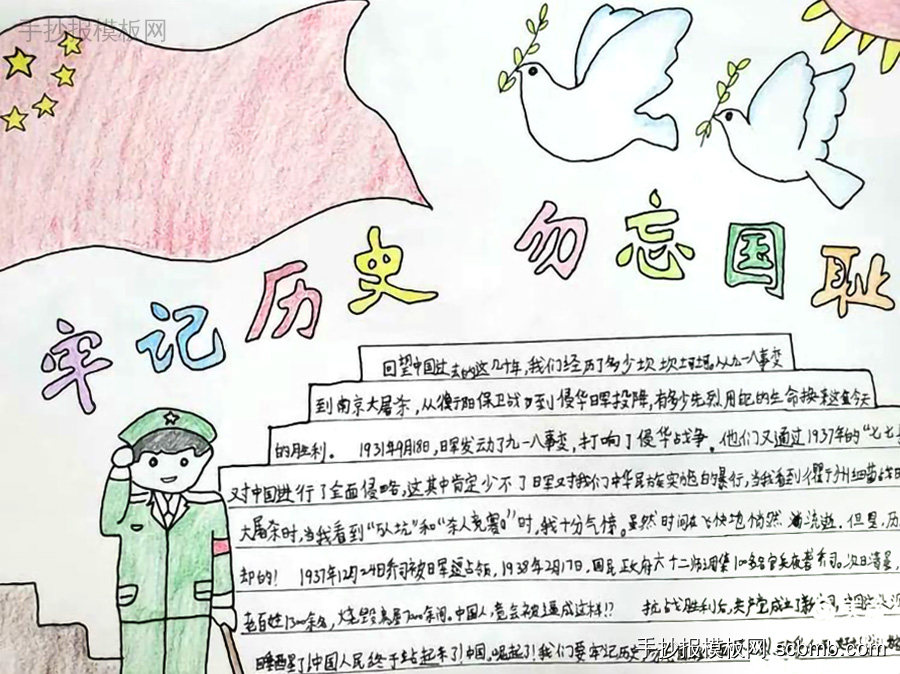 手抄报模板网
牢记历史 勿忘国耻
回望中国过去的这几十年,我们经历了多少坎坎坷坷。从九一八事变
到南京大屠杀,从衡阳保卫战到侵华日军投降,有多少先烈用自己的生命换来这在今天
的胜利。 1931年9月18日,日军发动了九一八事变,打响了侵华战争。他们又通过1937年的“七七
又对中国进行了全面侵略,这其中肯定少不了日军对我们中华民族实施的暴行,当我看到衢州细菌战
大屠杀时,当我看到“ 坑”和“杀人竞赛”时,我十分气愤。虽然时间在飞快地悄然 流逝,但是,历
却的! 1937年12月24日乔司被日军 占领,1938年2月17日,国民政府六十二师 集100多名官兵夜袭乔司。次日清晨,
老百姓1300余名,烧毁房屋7000余间。中国人,竟会被逼成这样!? 抗战胜利后,共产党成立了新中国,
醒了!中国人民终于站起来了!中国。崛起了!我们要牢记历史
手抄报模板网 scbmb.com